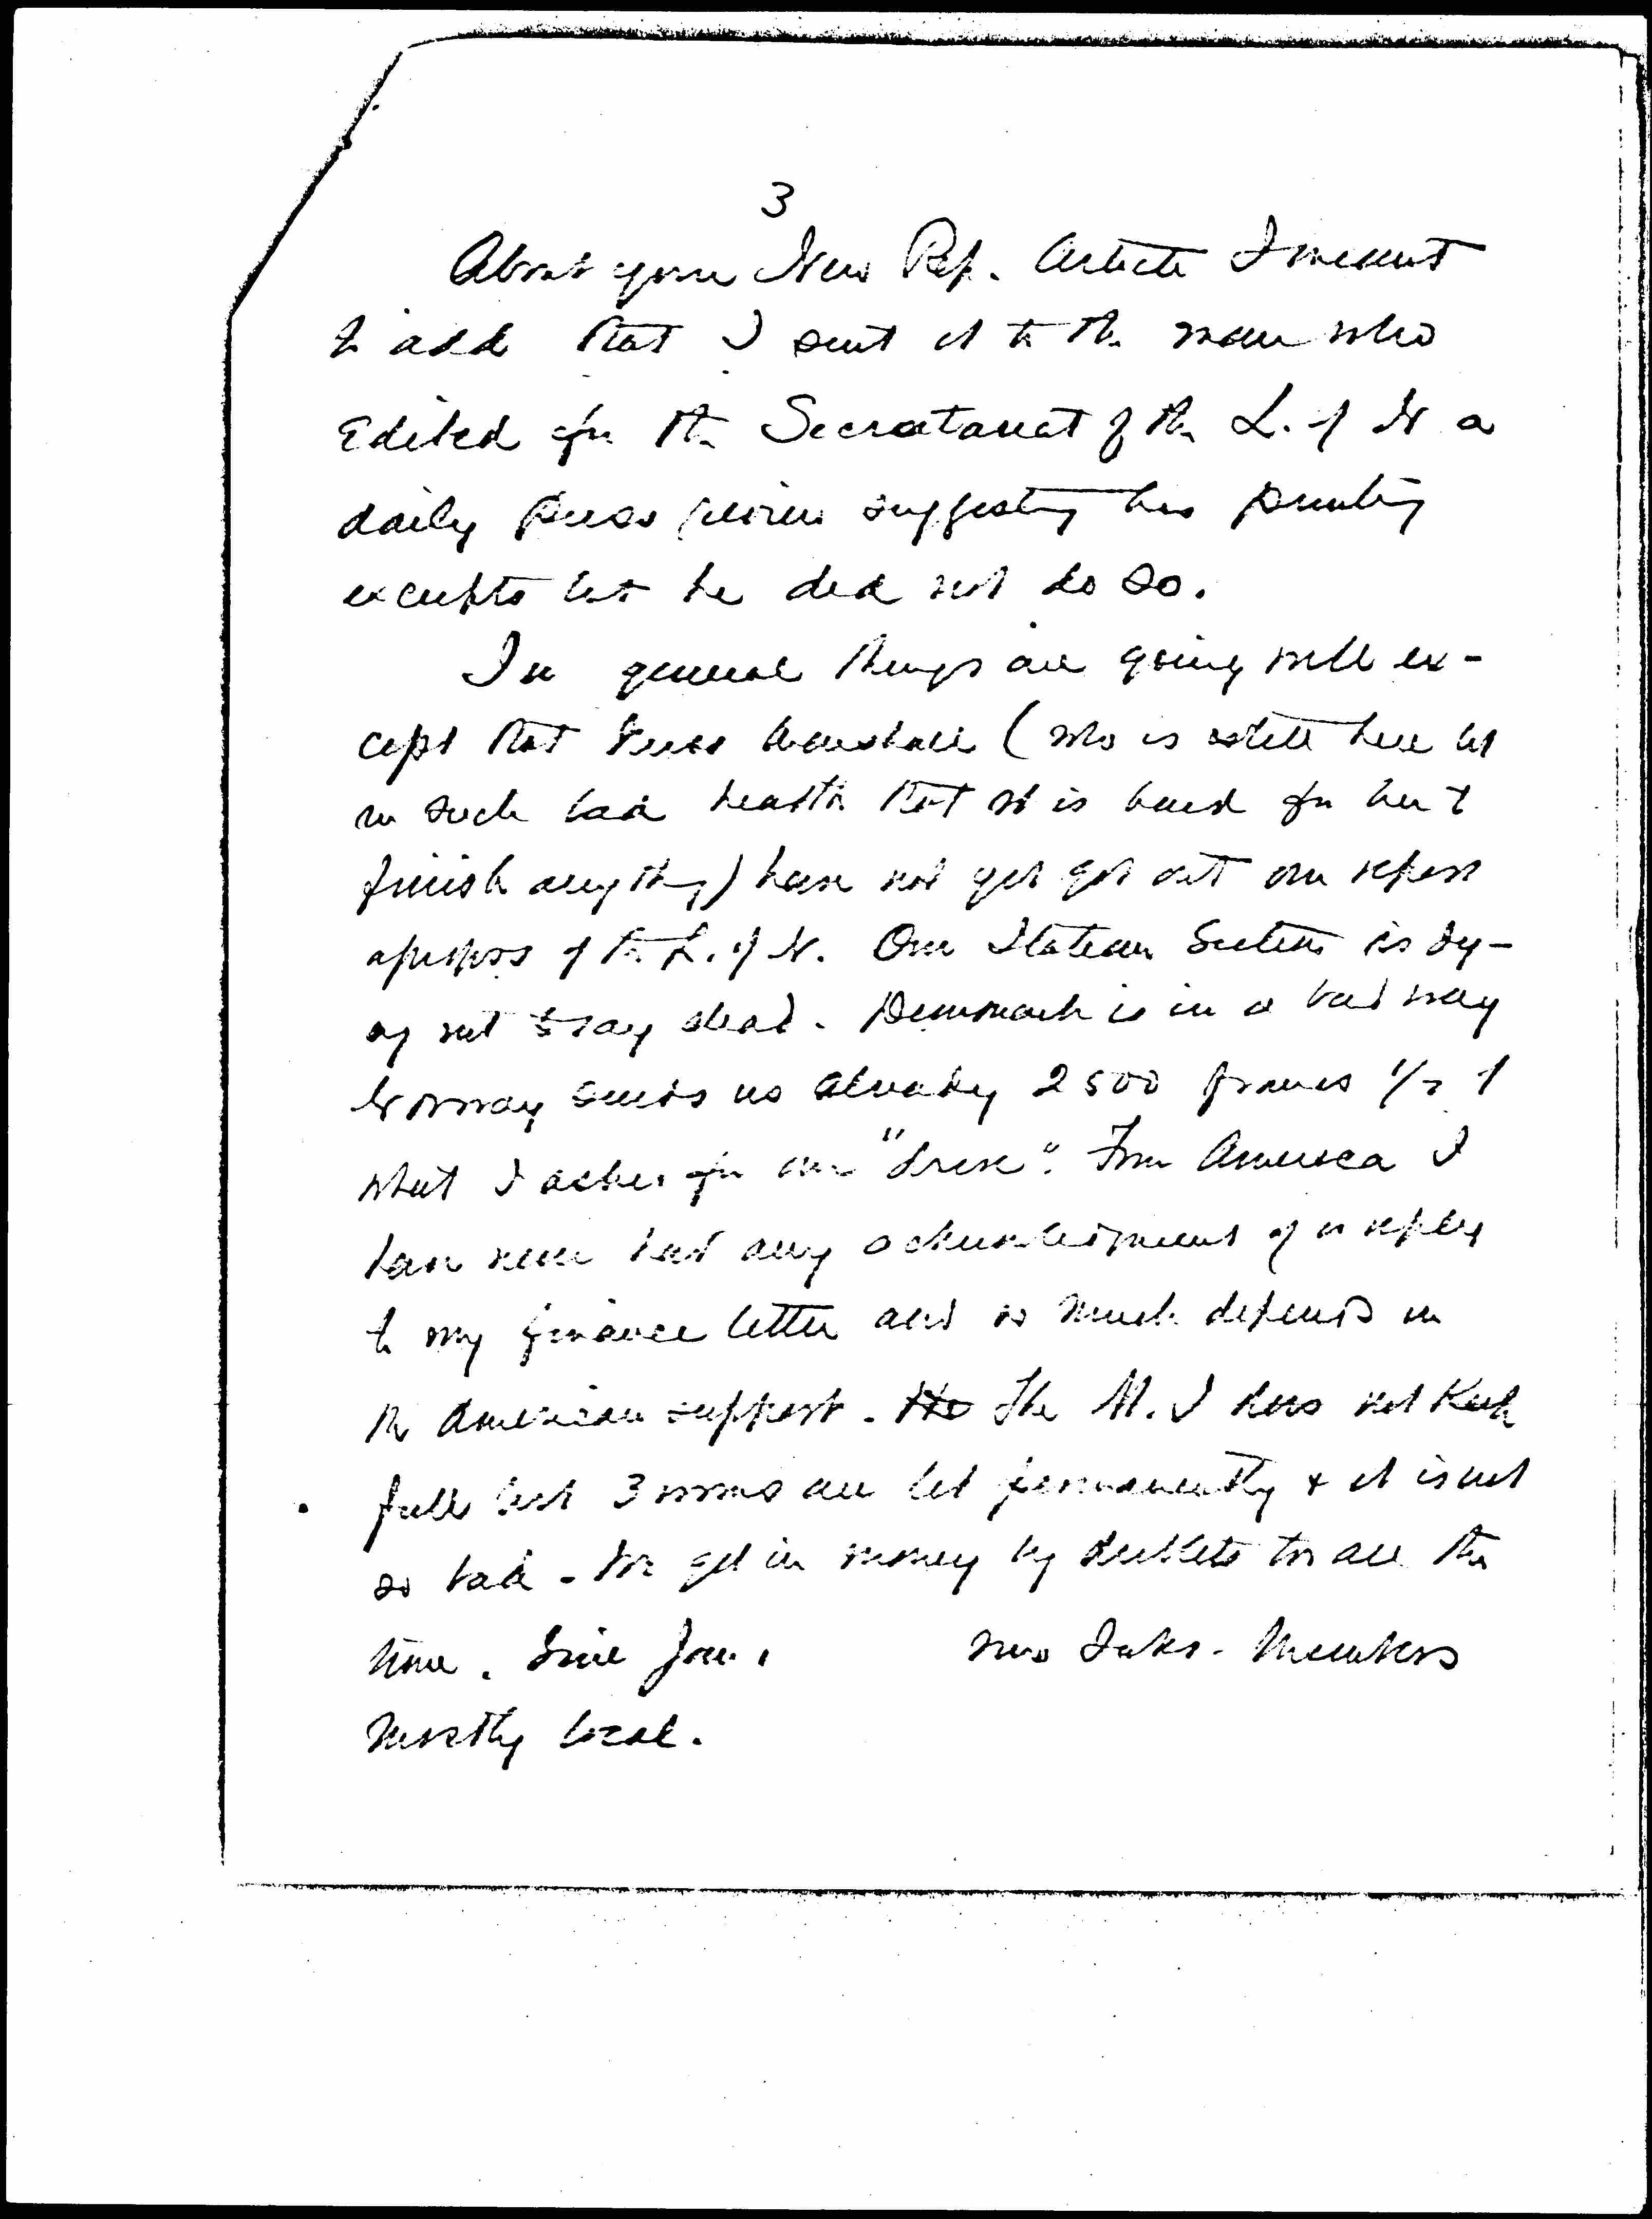 3
About your New Rep. Article I meant
to add that I sent it to the man who
Edited for the Secretariat of the L. of N a
daily press review suggesting his printing
excerpts but he did not do so.
In general things are going well ex-
cept that Miss (who is still here but
in such bad health that it is hard for her to
finish anything) have not yet got out our report
apropos of the L. of N. Our Italian Section is dy-
ing not to say dead. Denmark is in a bad way
Norway sends us already 2500 francs 1/2 of
what I asked for our "drive". From America I
have never had any acknowledgment of or reply
to my finance letter and so much depends on
the American support. The M. I does not Keep
full but 3 rooms are let permanently & it is not
so bad - We get in money by driblets too all the
time. Since Jan. two Intern. Members
mostly local.